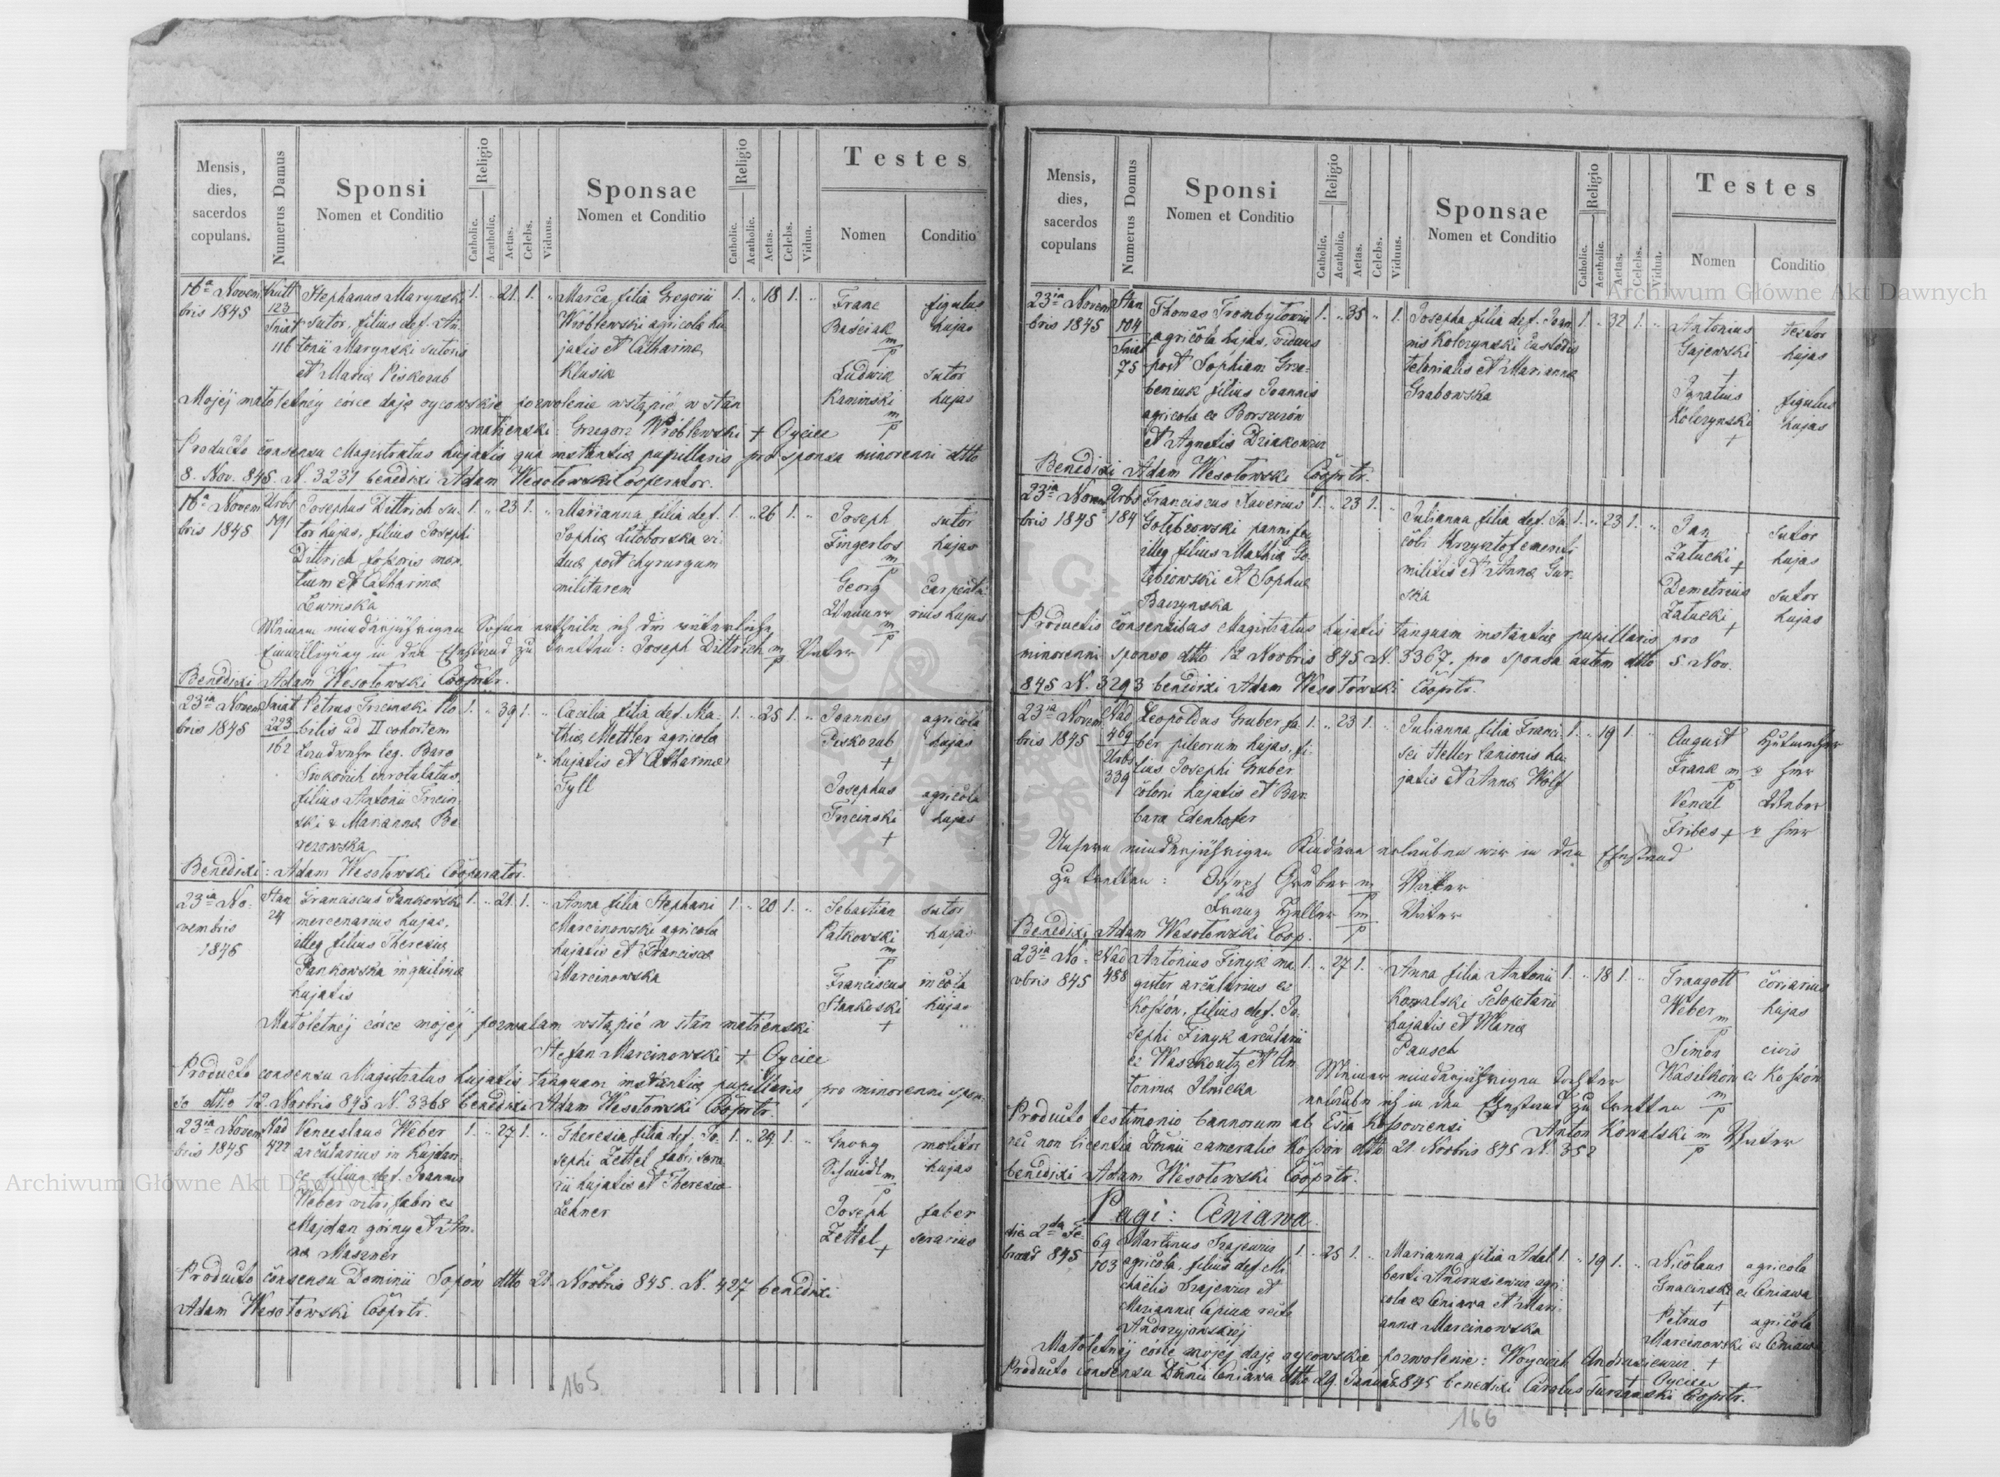 Mensis, dies, sacerdos copulans.
Numerus Damus
Sponsi
Nomen et Conditio
Religio
Catholic.
Acatholic.
Aetas.
Celebs.
Viduus.
Sponsae
Nomen et Conditio
Religio
Catholic.
Acatholic.
Aetas.
Celebs.
Vidua.
Testes
Nomen
Conditio
16a Novem
bris 1845
123
Sniat
116
Stephanus Marynski
Sutor, filius def. An
tonii Marynski sutoris
et Maria Piskozub
1. " 21 1. "
filia Gregorii
Wróblewski agricola hu
jatis et Catharina
Klusik
1. " 18 1. "
Franc
Baściak
m
p
Ludwik
Kaminski
m
p
figulus
hujas
sutor
hujas
Mojéj małoletnéy córce daję oycowskie pozwolenie wstąpić w stan
małżenski: Grzegorz Wróblewski + Oyciec
Producto consensu Magistratus hujatis qua instantia pupillaris pro sponsa minorenni dtto
8. Nov. 845. N. 3231 benedixi Adam Wesołowski Cooperator.
16a Novem
bris 1845
Urbs
191
Josephus Dittrich su
tor hujas, filius Josephi
Dittrich fossoris mon
tium et Catharina
1. " 23 1. "
Marianna filia def.
Sophia Litoborska vi
dua post chyrurgum
militarem
1. " 26 1. "
Joseph
Fingerlos
m
p
Georg
m
p
sutor
hujas
carpenta
rius hujas
Meinem minderjährigen Sohne ertheile ich die väterliche
Einwilligung in den Ehestand zu tretten: Joseph Dittrich m/p Vater
Benedixi Adam Wesołowski Cooprtr.
23ia Novem
bris 1845
Sniat
223
162
Petrus Trzcinski No
bilis ad II cohortem
Landwehr leg. Baro
filius Antonii Trzcin
ski & Marianna Be
rezowska
1. " 39 1. "
Cecilia filia def. Ma
thia Mettler agricola
hujatis et Catharina
Tyll
1. " 25 1. "
Joannes
Piskozub
+
Josephus
Trzcinski
+
agricola
hujas
agricola
hujas
Benedixi: Adam Wesołowski Cooperator.
23ia No-
vembris
1845
Stan
24
Franciscus Pankowski
mercenarius hujas,
illeg filius Theresia
Pankowska inquilina
hujatis
1. " 21 1. "
Anna filia Stephani
Marcinowski agricola
hujatis et Francisca
Marcinowska
1. " 20 1. "
Sebastian
Patkowski
m
p
Franciscus
Stankoski
+
sutor
hujas
incola
hujas
Małoletnéj córce mojéj pozwalam wstąpić w stan małżenski
Stefan Marcinowski + Oyciec
Producto consensu Magistratus hujatis tanquam instantia pupillaris pro minorenni spon
so dtto 12. Novbris 845 N. 3368 benedixi Adam Wesołowski Cooprtr.
23ia Novem
bris 1845
Nad
422
Venceslaus Weber
arcularius in Kujdan
ce filius def. Joannis
Weber vitri fabri ex
Majdan górny et An
na Maszner
1. " 27 1. "
Theresia filia def. Jo
sephi Zettel fabri sera
rii hujatis et Theresia
Lehner
1. " 24 1. "
Georg
Schmidt m
p
Joseph
Zettel
+
molitor
hujas
faber
serarius
Producto consensu Dominii Sopów dtto 21. Novbris 845. N. 427 benedixi
Adam Wesołowski Cooprtr.
165
Mensis, dies, sacerdos copulans
Numerus Domus
Sponsi
Nomen et Conditio
Religio
Catholic.
Acatholic.
Aetas.
Celebs.
Viduus.
Sponsae
Nomen et Conditio
Religio
Catholic.
Acatholic.
Aetas.
Celebs.
Vidua.
Testes
Nomen
Conditio
23ia Novem
bris 1845
Stan
104
Sniat
75
Thomas Trembytowicz
agricola hujas, viduus
post Sophiam Gre-
beniuk filius Joannis
agricola ex Borszczów
et Agnetis Dziakowicz
1. " 35 " 1.
Josepha filia def. Joan
nis Kolczynski custodis
telonialis et Marianna
Grabowska
1. " 32 1. "
Antonius
Gajewski
+
Ignatius
Kolczynski
+
textor
hujas
figulus
hujas
Benedixi Adam Wesołowski Cooprtr.
23ia Novem
bris 1845
Urbs
184
Franciscus Xaverius
Gołębiowski pannifex
illeg. filius Mathia Go-
łębiowski et Sophia
Baczynska
1. " 23 1. "
Julianna filia def. Ja
cobi Krzysztof emeriti
militis et Anna Gur-
ska
1. " 23 1. "
Jan
Załucki
+
Demetrius
Załucki
+
sutor
hujas
sutor
hujas
Productis consensibus Magistratus hujatis tanquam instantia pupillaris pro
minorenni sponso dtto 12 Novbris 845 N. 3367, pro sponsa autem dtto 5. Nov.
845 N. 3293 benedixi Adam Wesołowski Cooprtr.
23ia Novem
bris 1845
Nad
469
Urbs
339
Leopoldus Gruber fa
ber pileorum hujas, fi
lius Josephi Gruber
coloni hujatis et Bar
bara Edenhofer
1. " 23 1. "
Julianna filia Franci
sci Heller lanionis hu
jatis et Anna Wolf
1. " 19 1. "
August
Frank m
p
Vencel
Fribes +
Hutmacher
v. hier
Weber
v. hier
Unsern minderjährigen Kindern erlauben wir in den Ehestand
zu tretten: Joseph Gruber m/p Vater
Franz Heller m/p Vater
Benedixi Adam Wesołowski Coop.
23ia No-
vbris 845
Nad
488
Antonius Finyk ma
gister arcularius ex
Kossów, filius def. Jo
sephi Finyk arcularii
ex Waszkoutz et An
tonina Ilnicka
1. " 27 1. "
Anna filia Antonii
Kowalski Sclopetarii
hujatis et Maria
Pausch
1. " 18 1. "
Traugott
Weber m
p
Simon
Wasilków
m
p
coriarius
hujas
civis
ex Kossów
Meiner minderjährigen Tochter
erlaube ich in den Ehestand zu tretten
Anton Kowalski m/p Vater
Producto testimonio bannorum ab Eccia Kossoviensi
nec non licentia Dominii cameralis Kossów dtto 21. Novbris 845 N. 352
benedixi Adam Wesołowski Cooprtr.
Pagi: Ceniawa
die 2da Fe
bruar 845
69
103
Martinus Gajewicz
agricola, filius def Mi
chaelis Gajewicz et
Marianna Capiuk recte
Andrzyjewskiéj
1. " 25 1. "
Marianna filia Adal
berti Andrusiewicz agri
cola ex Ceniawa et Mari
anna Marcinowska
1. " 19 1. "
Nicolaus
+
Petrus
Marcinowski
+
agricola
ex Ceniawa
agricola
ex Ceniawa
Małoletnéj córce mojéj daję oycowskie pozwolenie: Woyciech Andrusiewicz +
Oyciec
Producto consensu Dominii Ceniawa dtto 29. Januar 845 benedixi Carolus Turzanski Cooprtr.
166
Archiwum Główne Akt Dawnych
Archiwum Główne Akt Dawnych